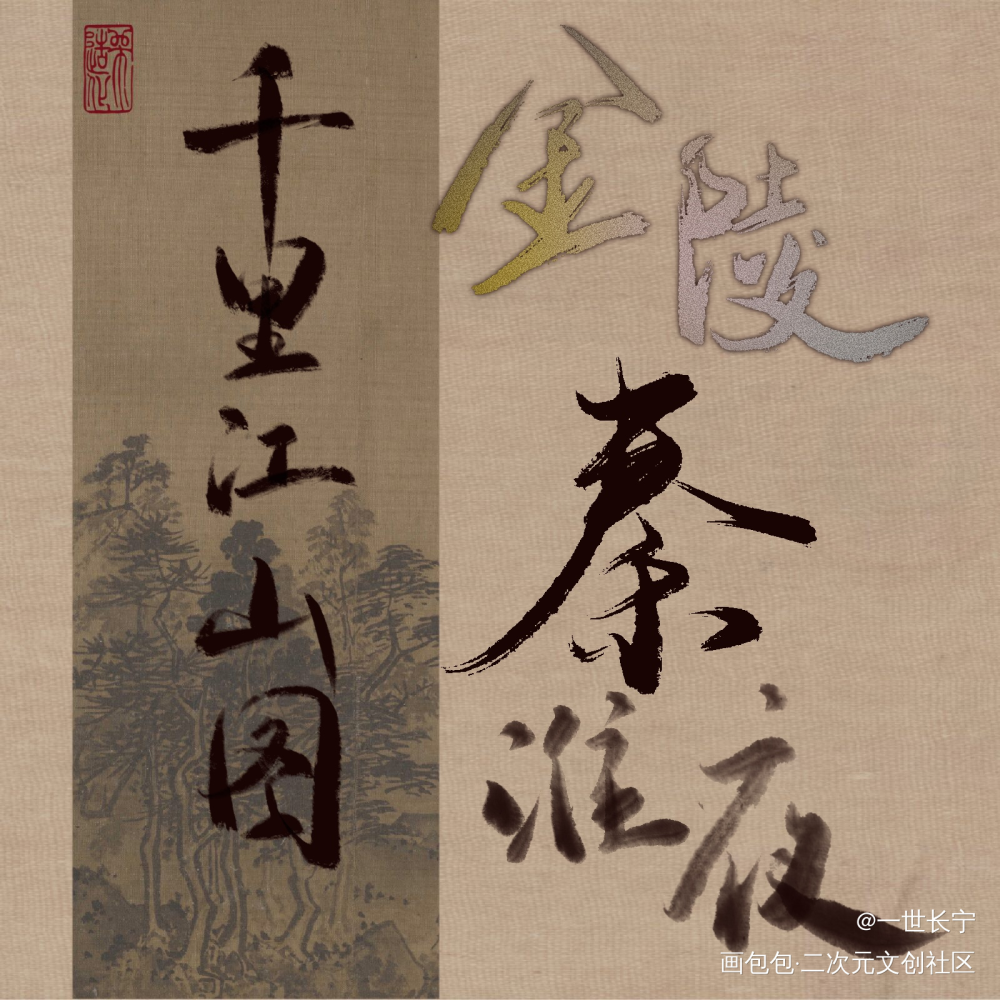 千里江山图
金陵
秦
淮夜
@一世长宁
画包包·二次元文创社区